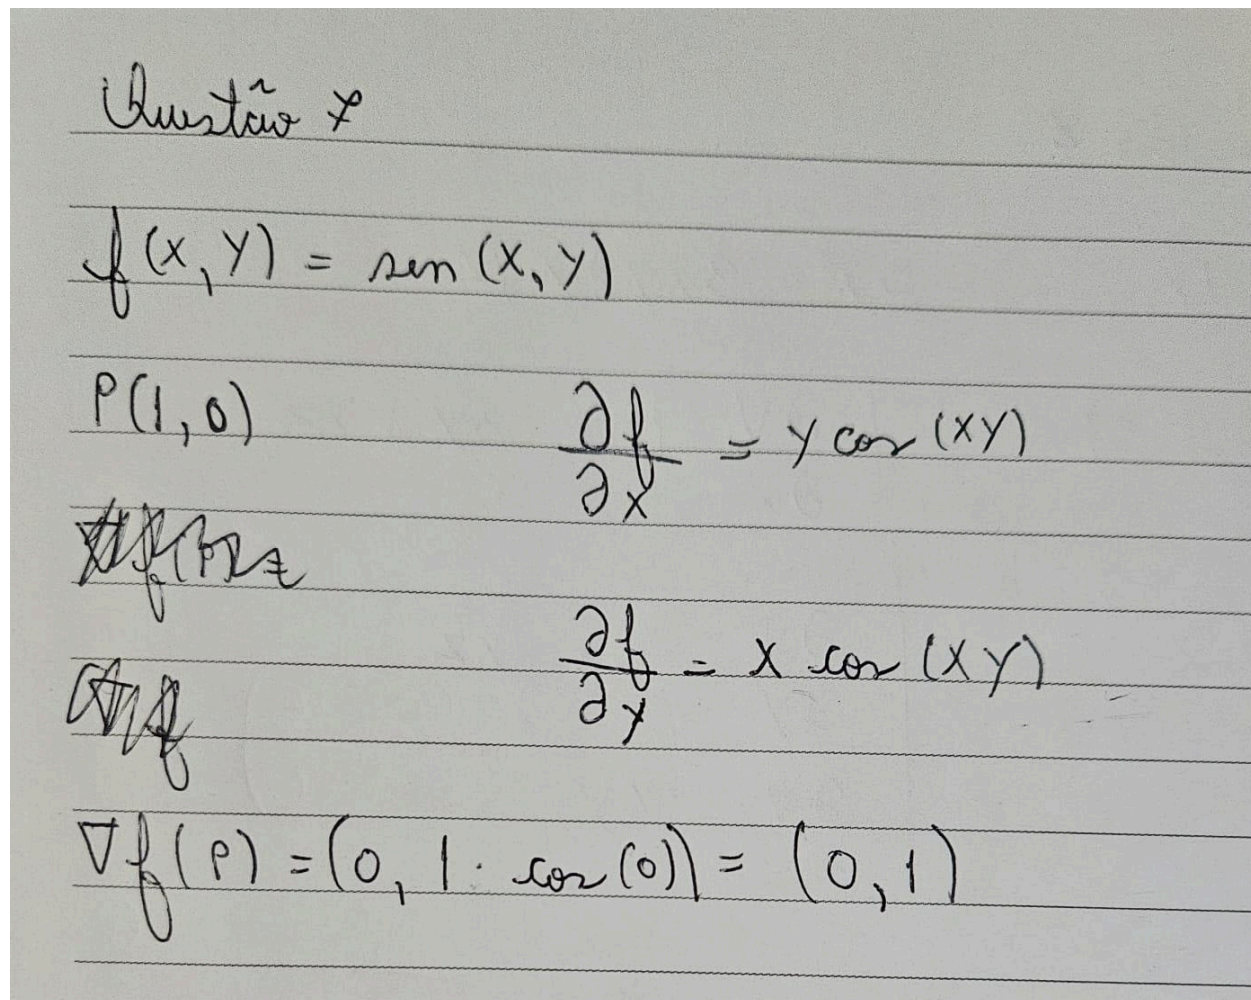 Questão 7
f(x,y) = sen(x,y)
P(1,0)
∂f/∂x = y cos(xy)
∂f/∂y = x cos(xy)
∇f(P) = (0, 1 · cos(0)) = (0,1)